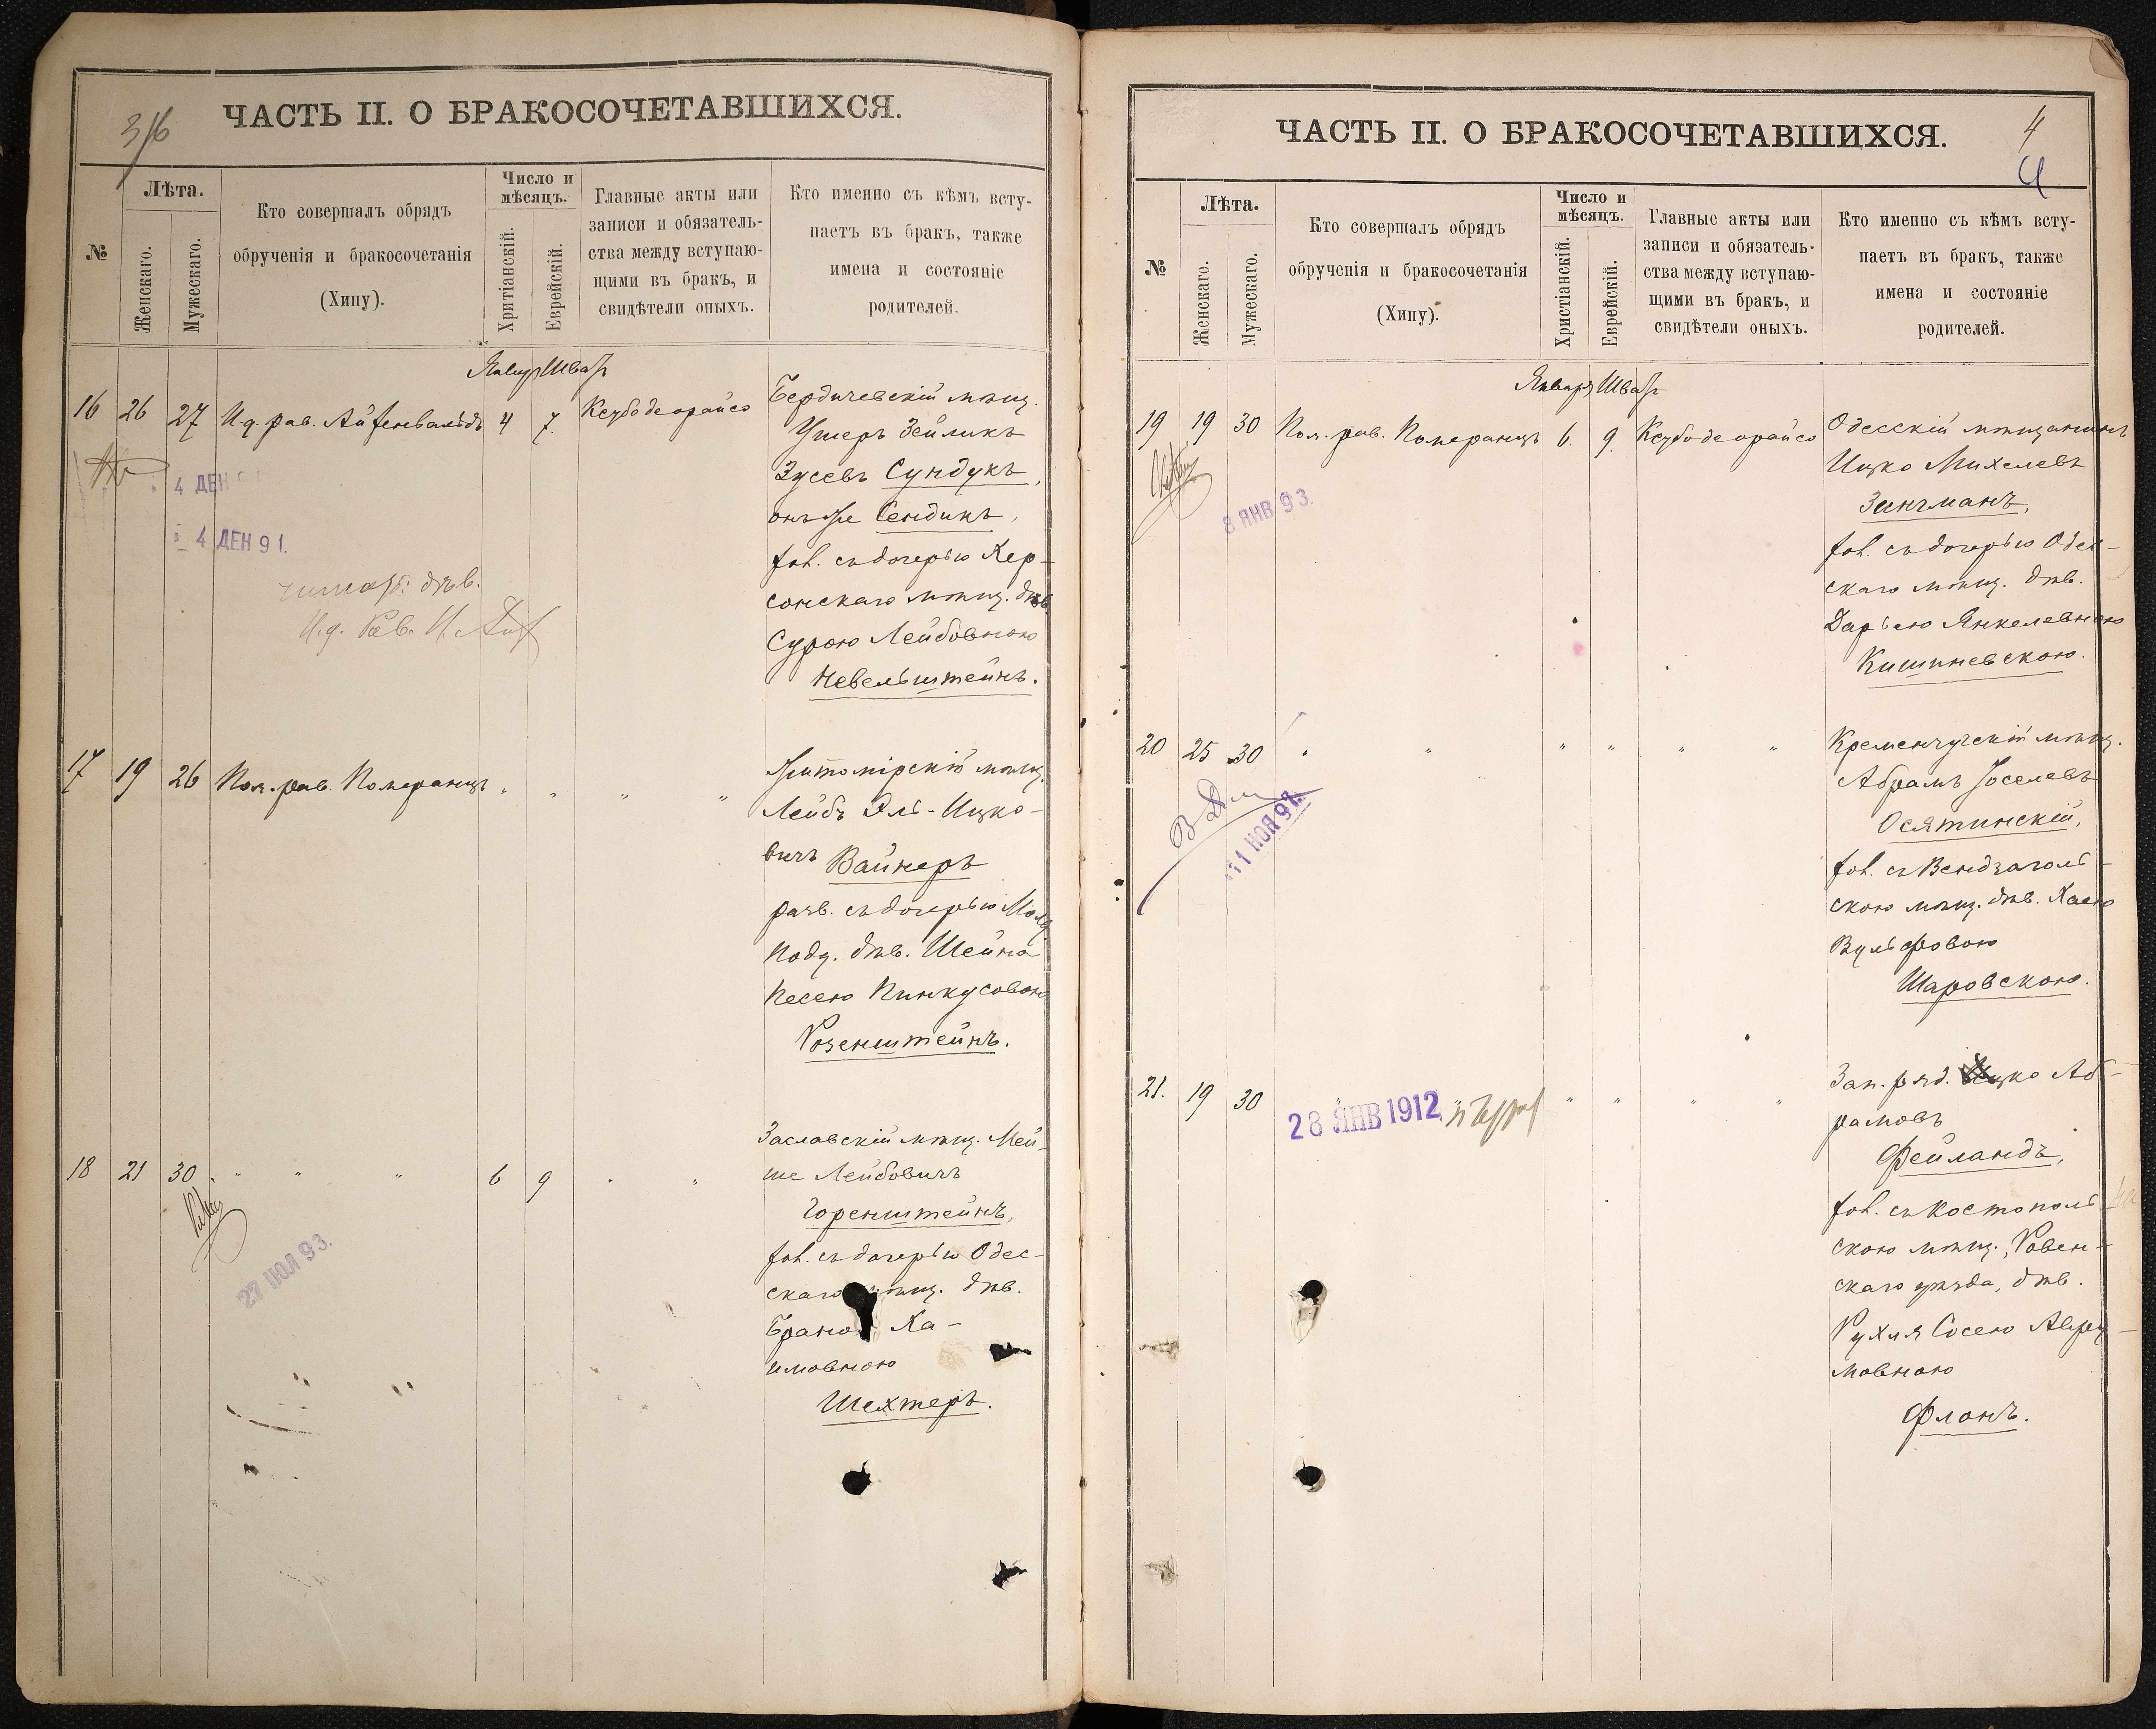 3/6
ЧАСТЬ II. О БРАКОСОЧЕТАВШИХСЯ.
№
Лѣта.
Женскаго.
Мужескаго.
Кто совершалъ обрядъ
обрученія и бракосочетанія
(Хипу).
Число и
мѣсяцъ.
Хритіанскій.
Еврейскій.
Главные акты или
записи и обязатель-
ства между вступаю-
щими въ бракъ, и
свидѣтели оныхъ.
Кто именно съ кѣмъ всту-
паетъ въ бракъ, также
имена и состояніе
родителей.
16 26 27 И.д. рав. Айзенвальдъ 4 7. Ксубо деорайсо
Бердичевскій мѣщ.
Ушеръ Зейликъ
Зусевъ Сундукъ,
онъ же Сендикъ,
хол. съ дочерью Хер-
сонскаго мѣщ. дѣв.
Сурою Лейбовною
Невельштейнъ.
4 ДЕН
4 ДЕН 91.
дѣв.
И.д. Рав.
17 19 26 Пом. рав. Померанцъ " " " "
Житомірскій мѣщ.
Лейбъ Эль-Ицко-
вичъ Вайнеръ
разв. съ дочерью
дѣв. Шейна
Песею Пинкусовою
Розенштейнъ.
18 21 30 " " " 6 9 " "
Заславскій мѣщ. Мей-
ше Лейбовичъ
Горенштейнъ,
хол. съ дочерью Одес-
скаго мѣщ. дѣв.
Ха-
имовною
Шехтеръ.
27 ІЮЛ 93.
4
4
ЧАСТЬ II. О БРАКОСОЧЕТАВШИХСЯ.
№
Лѣта.
Женскаго.
Мужескаго.
Кто совершалъ обрядъ
обрученія и бракосочетанія
(Хипу).
Число и
мѣсяцъ.
Христіанскій.
Еврейскій.
Главные акты или
записи и обязатель-
ства между вступаю-
щими въ бракъ, и
свидѣтели оныхъ.
Кто именно съ кѣмъ всту-
паетъ въ бракъ, также
имена и состояніе
родителей.
Января Шват
19 19 30 Пом. рав. Померанцъ 6. 9. Ксубо деорайсо
Одесскій мѣщанинъ
Ицко Михелевъ
Зингманъ,
хол. съ дочерью Одес-
скаго мѣщ. дѣв.
Дарьею Янкелевною
Кишиневскою.
8 ЯНВ 93.
20 25 30 " " " " " "
Кременчугскій мѣщ.
Абрамъ Іоселевъ
Осятинскій,
хол. съ Вендзаголь-
скою мѣщ. дѣв. Хаею
Вульфовою
Шаровскою.
11 ІЮЛ 97.
21. 19 30 " " " " " "
28 ЯНВ 1912
Зап. ряд. Ицко Аб-
рамовъ
Фейландъ,
хол. съ Костополь-
скою мѣщ., Ровен-
скаго уѣзда, дѣв.
Рухля Сосею
мовною
Флонъ.